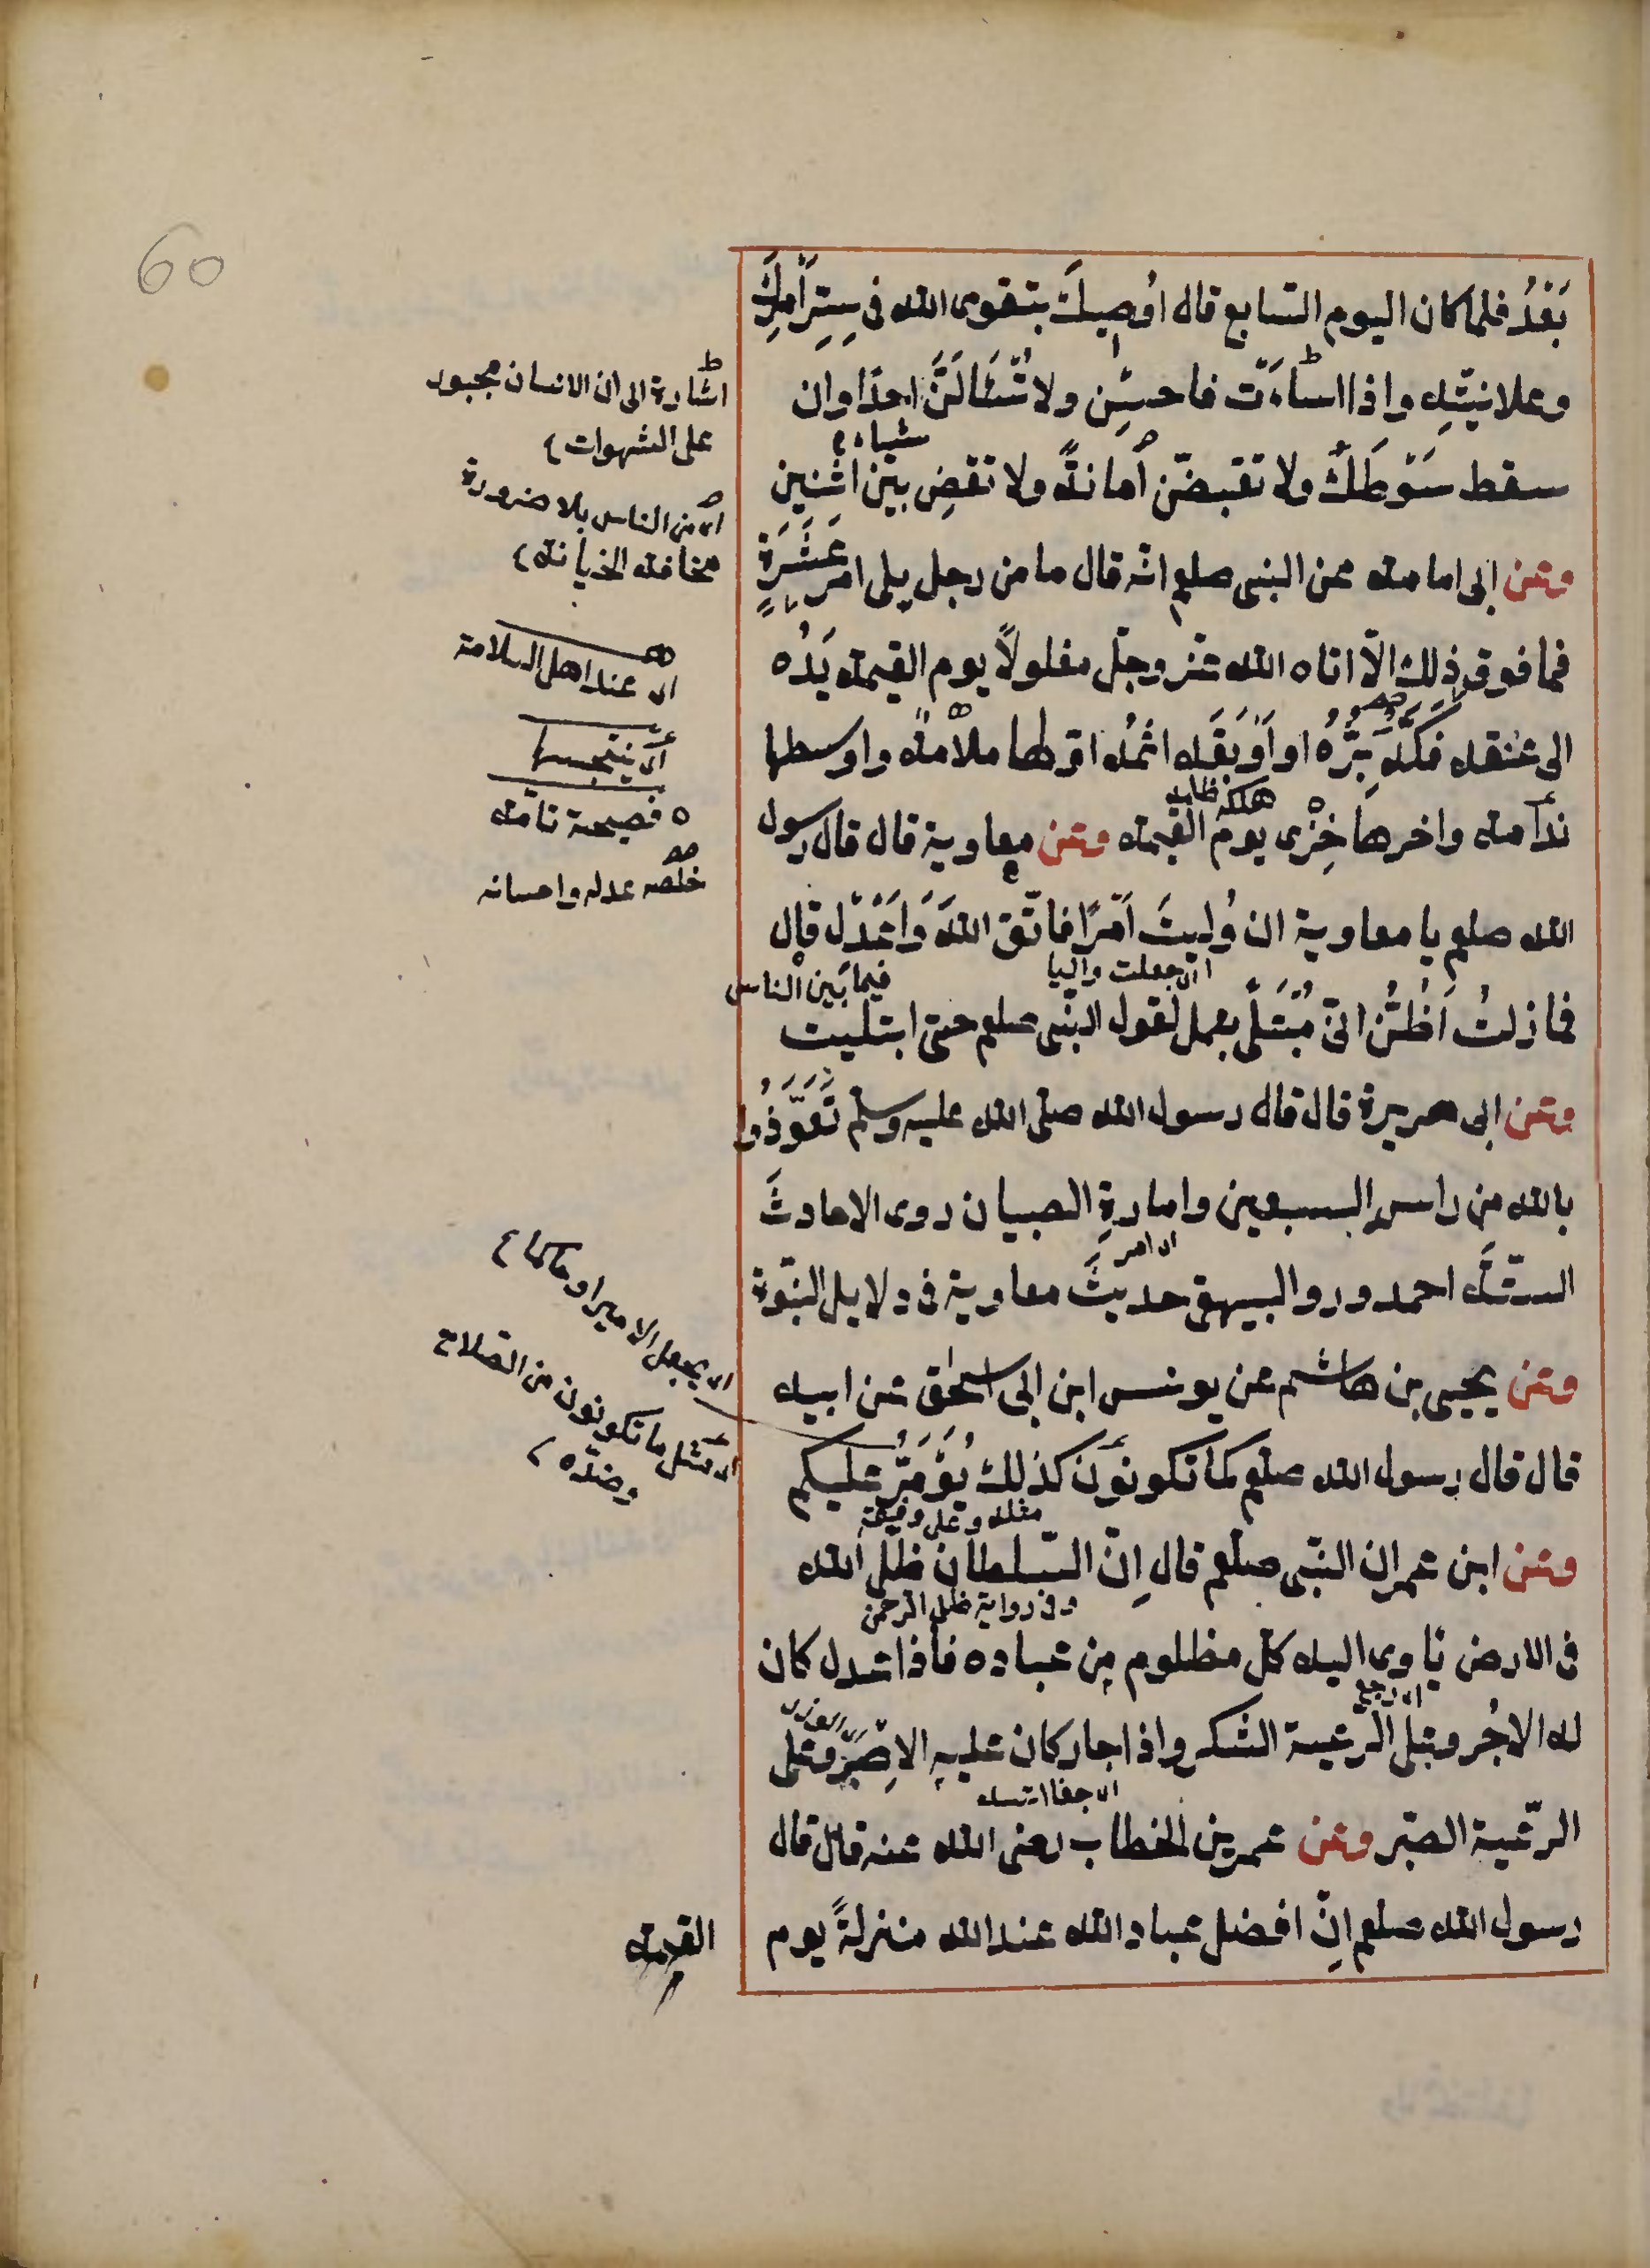 60
بَعْدُ فلما كان اليوم السّابع قال اُوصيكَ بتقوى الله فى سِرِّ اَمرِكَ
وعلانيّته واذا اساءَت فاحسِن ولا تَسْئَالَنَّ احدًا وان
شياء
سقط سَوْطُكَ ولا تقبضّن اَمانةً ولا تقضِ بين اثنين
وعن ابى امامته عن النبى صلعم انّه قال ما من رجل يلى امر عَشَرَةٍ
فما فوق ذلك الاّ اتاه الله عزّ وجلّ مغلولاً يوم القيمة يَدُه
الى عُنقه فكّه بِرُّهُ او اَوْبَقَه اثمُه اوّلها ملاَمة واوسطها
هلكه
ندَامة واخرها خِزْى يوم القيمة وعن معاوية قال قال رسول
الله صلعم يا معاوية ان وُليتَ اَمْرًا فاتّق اللهَ وَاعْدِل قال
اى جعلت واليا
فيما بَين الناس
فما زلتُ اَظُنُّ انّى مُبْتَلًى بعمل لقول النّبى صلعم حتى ابتليت
وعن ابى هريرة قال قال رسول الله صلّى الله عليه وسلّم تَعَوَّذُوا
بالله من راس السبعين وامارةِ الصبيان روى الاحاديثَ
السّتّةَ احمد ورو البيهقى حديثَ معاوية فى دلايل النبّوة
وعن يحيى بن هاشم عن يونس ابن ابى اسحٰق عن ابيه
قال قال رسول الله صلعم كما تكونَون كذلك يُؤَمَّرُ عليكم
مثله وعلى وفيقة
وعن ابن عمر ان النبّى صلعم قال اِنّ السّلطان ظلّ الله
وفى رواية ظل الرحمن
فى الارض ياوى اليه كلّ مظلوم مِن عباده فاذا عدل كان
اى رجع
له الاجُر وعلى الرّعية الشكر واذا جار كان عليه الاِصْرُ وعلى
الرّعية الصّبر وعن عمر بن الخطاب رضى الله عنه قال قال
رسول الله صلعم اِنّ افضل عباد الله عند الله منزلةً يوم
القيمة
اشارة الى ان الانسان مجبور
على الشهوات
اى من الناس بلا ضرورة
مخافة الخيانة
اى عند اهل السلامة
فصيحة تامّة
خلصه عدله واحسانه
اى يجعل الامير او حاكما
اى مثل ما تكونون من الصّلاح
وضدّه